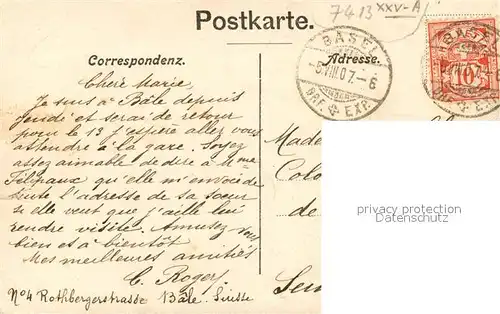 7413 XXV-A
Postkarte.
Correspondenz.
Adresse.
BASEL
-5.VIII.07.-6
BRF. EXP.
BASEL
10
BRF. EXP.
Chère Marie,
Je suis à Bâle depuis
jeudi et serai de retour
pour le 13 j'espère aller vous
attendre à la gare. Soyez
assez aimable de dire à Mme
Filipaux qu'elle m'envoie de
suite l'adresse de sa soeur
si elle veut que j'aille lui
rendre visite. Amusez-vous
bien et à bientôt
Mes meilleures amitiés
C. Roger
No 4 Rothbergerstrasse Bâle. Suisse
Made
Colo
de
privacy protection
www.oldthing.de